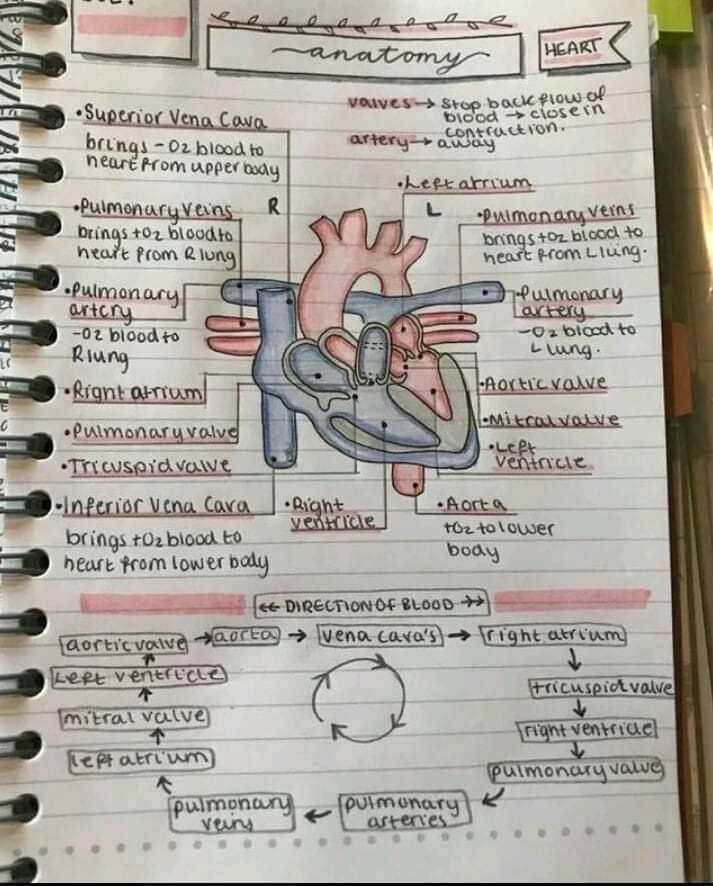 anatomy
HEART
valves → stop backflow of
blood → close in
contraction.
artery → away
•Superior Vena Cava
brings -O2 blood to
heart from upper body
•Left atrium
•Pulmonary Veins
brings +O2 blood to
heart from R lung
R
L
•Pulmonary veins
brings +O2 blood to
heart from L lung.
•Pulmonary
artery
-O2 blood to
R lung
•Pulmonary
artery
-O2 blood to
L lung.
•Right atrium
•Pulmonary valve
•Tricuspid valve
•Aortic valve
•Mitral valve
•Left
ventricle
•Inferior Vena Cava
brings +O2 blood to
heart from lower body
•Right
ventricle
•Aorta
+O2 to lower
body
←← DIRECTION OF BLOOD →→
aortic valve → aorta → vena cava's → right atrium
↓
tricuspid valve
↓
right ventricle
↓
pulmonary valve
↙
pulmonary
arteries
←
pulmonary
veins
↖
left atrium
↑
mitral valve
↑
Left ventricle
↑